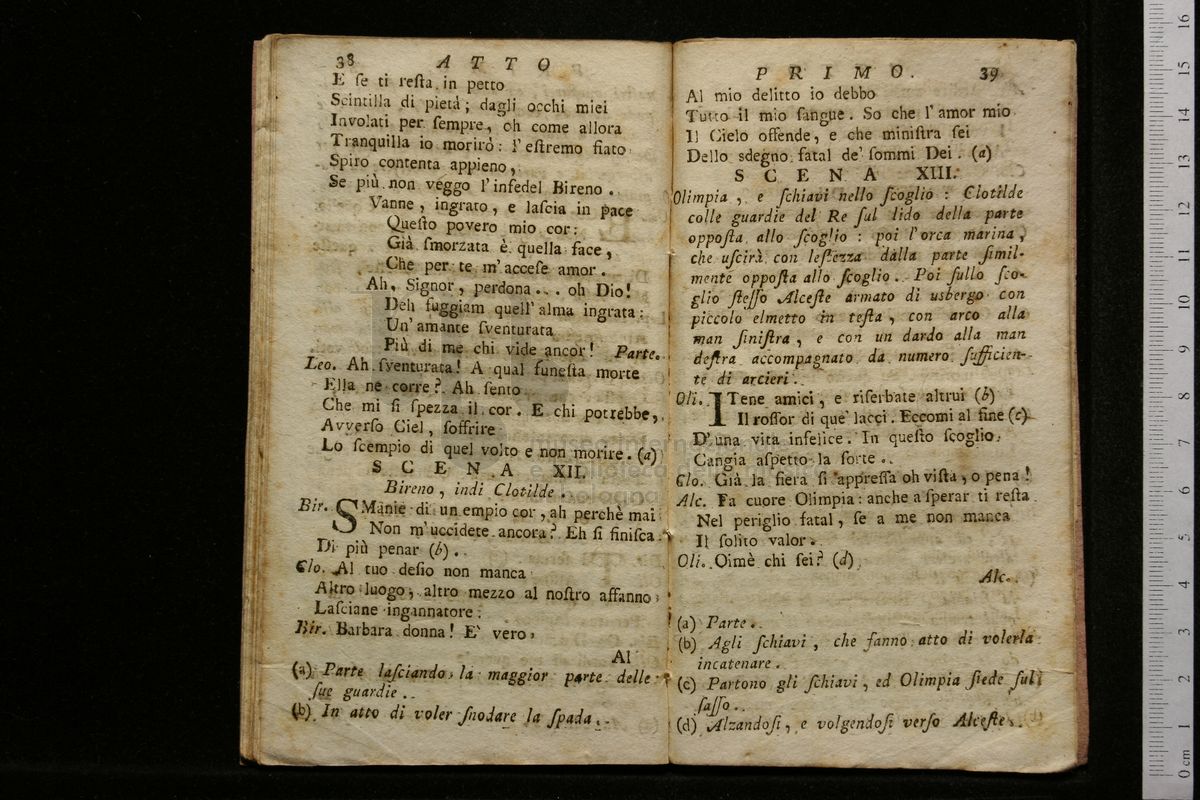 38 ATTO
E se ti resta in petto
Scintilla di pietà; dagli occhi miei
Involati per sempre, oh come allora
Tranquilla io morirò: l'estremo fiato
Spiro contenta appieno,
Se più non veggo l'infedel Bireno.
Vanne, ingrato, e lascia in pace
Questo povero mio cor:
Già smorzata è quella face,
Che per te m'accese amor.
Ah, Signor, perdona... oh Dio!
Deh fuggiam quell'alma ingrata:
Un'amante sventurata
Più di me chi vide ancor! Parte.
Leo. Ah sventurata! A qual funesta morte
Ella ne corre? Ah sento
Che mi si spezza il cor. E chi potrebbe,
Avverso Ciel, soffrire
Lo scempio di quel volto e non morire. (a)
SCENA XII.
Bireno, indi Clotilde.
Bir. SManie di un empio cor, ah perchè mai
Non m'uccidete ancora? Eh si finisca
Di più penar (b).
Clo. Al tuo desio non manca
Altro luogo, altro mezzo al nostro affanno,
Lasciane ingannatore:
Bir. Barbara donna! E' vero,
Al
(a) Parte lasciando la maggior parte delle
sue guardie.
(b) In atto di voler snodare la spada.
PRIMO. 39
Al mio delitto io debbo
Tutto il mio sangue. So che l'amor mio
Il Cielo offende, e che ministra sei
Dello sdegno fatal de' sommi Dei. (a)
SCENA XIII.
Olimpia, e schiavi nello scoglio: Clotilde
colle guardie del Re sul lido della parte
opposta allo scoglio: poi l'orca marina,
che uscirà con lestezza dalla parte simil-
mente opposta allo scoglio. Poi sullo sco-
glio stesso Alceste armato di usbergo con
piccolo elmetto in testa, con arco alla
man sinistra, e con un dardo alla man
destra accompagnato da numero sufficien-
te di arcieri.
Oli. ITene amici, e riserbate altrui (b)
Il rossor di que' lacci. Eccomi al fine (c)
D'una vita infelice. In questo scoglio,
Cangia aspetto la sorte.
Clo. Già la fiera si appressa oh vista, o pena!
Alc. Fa cuore Olimpia: anche a sperar ti resta
Nel periglio fatal, se a me non manca
Il solito valor.
Oli. Oimè chi sei? (d)
Alc.
(a) Parte.
(b) Agli schiavi, che fanno atto di volerla
incatenare.
(c) Partono gli schiavi, ed Olimpia siede sul
sasso.
(d) Alzandosi, e volgendosi verso Alceste.